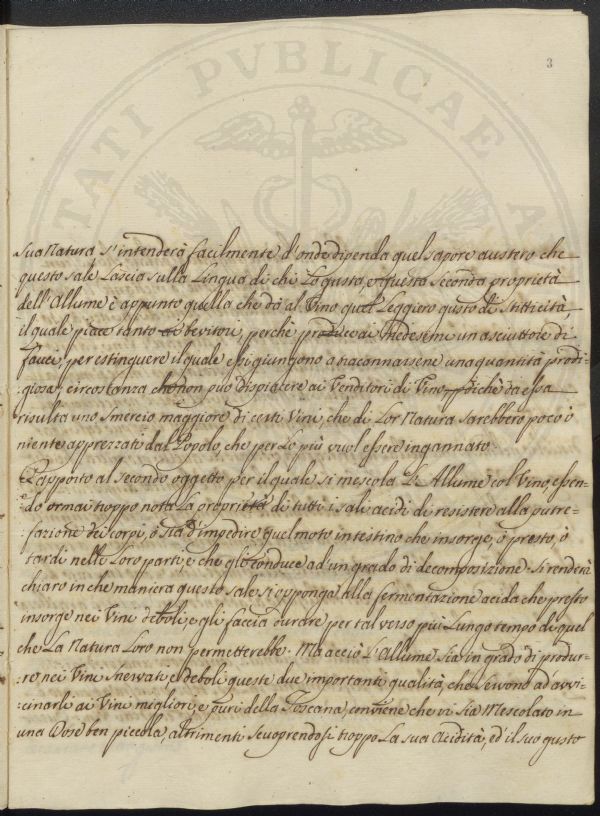 TATI PVBLICAE
3
Sua Natura s'intenderà facilmente d'onde dipenda quel sapore austero che
questo sale Lascia sulla Lingua di chi Lo gusta, e questa seconda proprietà
dell'Allume è appunto quella che dà al Vino quel Leggiero gusto di stitticità,
il quale piace tanto ai bevitori, perchè produce ai medesimi un asciuttore di
fauci, per estinguere il quale essi giungono a traccannarsene una quantità prodi-
:giosa; circostanza che non può dispiacere ai Venditori di Vino, poichè da essa
risulta uno smercio maggiore di certi Vini, che di Lor Natura sarebbero poco, ò
niente apprezzati dal Popolo, che per Lo più vuol essere ingannato.
Rapporto al secondo oggetto per il quale si mescola L'Allume col Vino, essen-
:do ormai troppo nota La proprietà di tutti i sali acidi di resistere alla putre-
:fazione dei corpi, ò sia d'impedire quel moto intestino che insorge, ò presto, ò
tardi nelle Loro parti, e che gli conduce ad un grado di decomposizione. Si renderà
chiaro in che maniera questo sale si opponga alla fermentazione acida che presto
insorge nei Vini deboli, e gli faccia durare per tal verso più Lungo tempo di quel
che La Natura Loro non permetterebbe. Ma acciò L'Allume sia in grado di produr-
:re nei Vini snervati, e deboli queste due importanti qualità, che servono ad avvi-
:cinarli ai Vini migliori, e puri della Toscana, conviene che vi sia Mescolato in
una Dose ben piccola, altrimenti scuoprendosi troppo La sua Acidità, ed il suo gusto